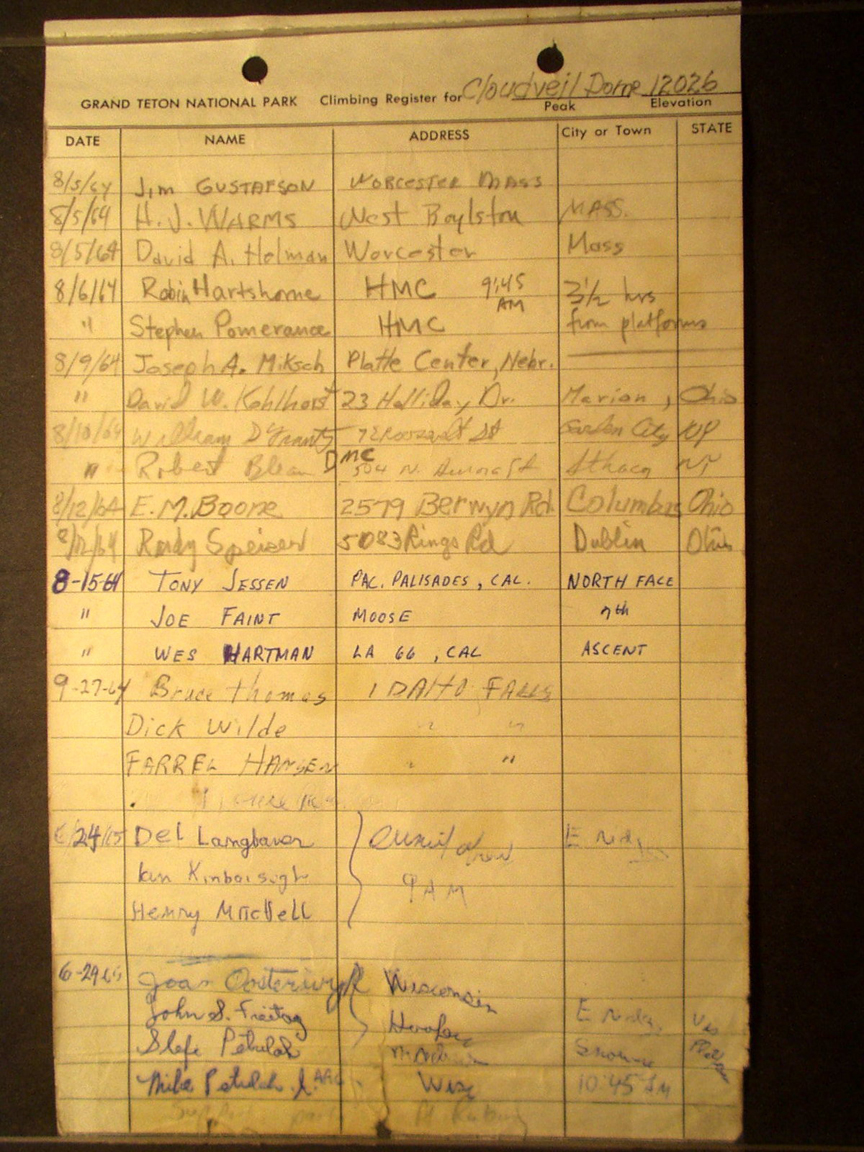 Cloudveil Dome 12026
GRAND TETON NATIONAL PARK Climbing Register for
Peak Elevation
DATE NAME ADDRESS City or Town STATE
8/5/64 Jim GUSTAFSON WORCESTER MASS
8/5/64 H. J. WARMS West Boylston MASS.
8/5/64 David A. Holman Worcester Mass
8/6/64 Robin Hartshorne HMC 9:45 AM 3 1/2 hrs
" Stephen Pomerance HMC from platforms
8/9/64 Joseph A. Miksch Platte Center, Nebr.
" David W. Kohlhorst 23 Holliday Dr. Marion, Ohio
8/10/64 William Garden City
" Robert DMC 504 N. Aurora St Ithaca NY
8/12/64 E.M. Boone 2579 Berwyn Rd. Columbus Ohio
8/12/64 Randy Speiser 5083 Rings Rd Dublin Ohio
8-15-64 TONY JESSEN PAC. PALISADES, CAL. NORTH FACE
" JOE FAINT MOOSE 7th
" WES HARTMAN LA 66, CAL ASCENT
9-27-64 Bruce Thomas IDAHO FALLS
Dick Wilde " "
FARREL HANSEN " "
6/24/65 Del Langbauer E
Ian 9 AM
Henry Mitchell
6-29 65 Joan Wisconsin
John S. Freitag E
10:45 AM